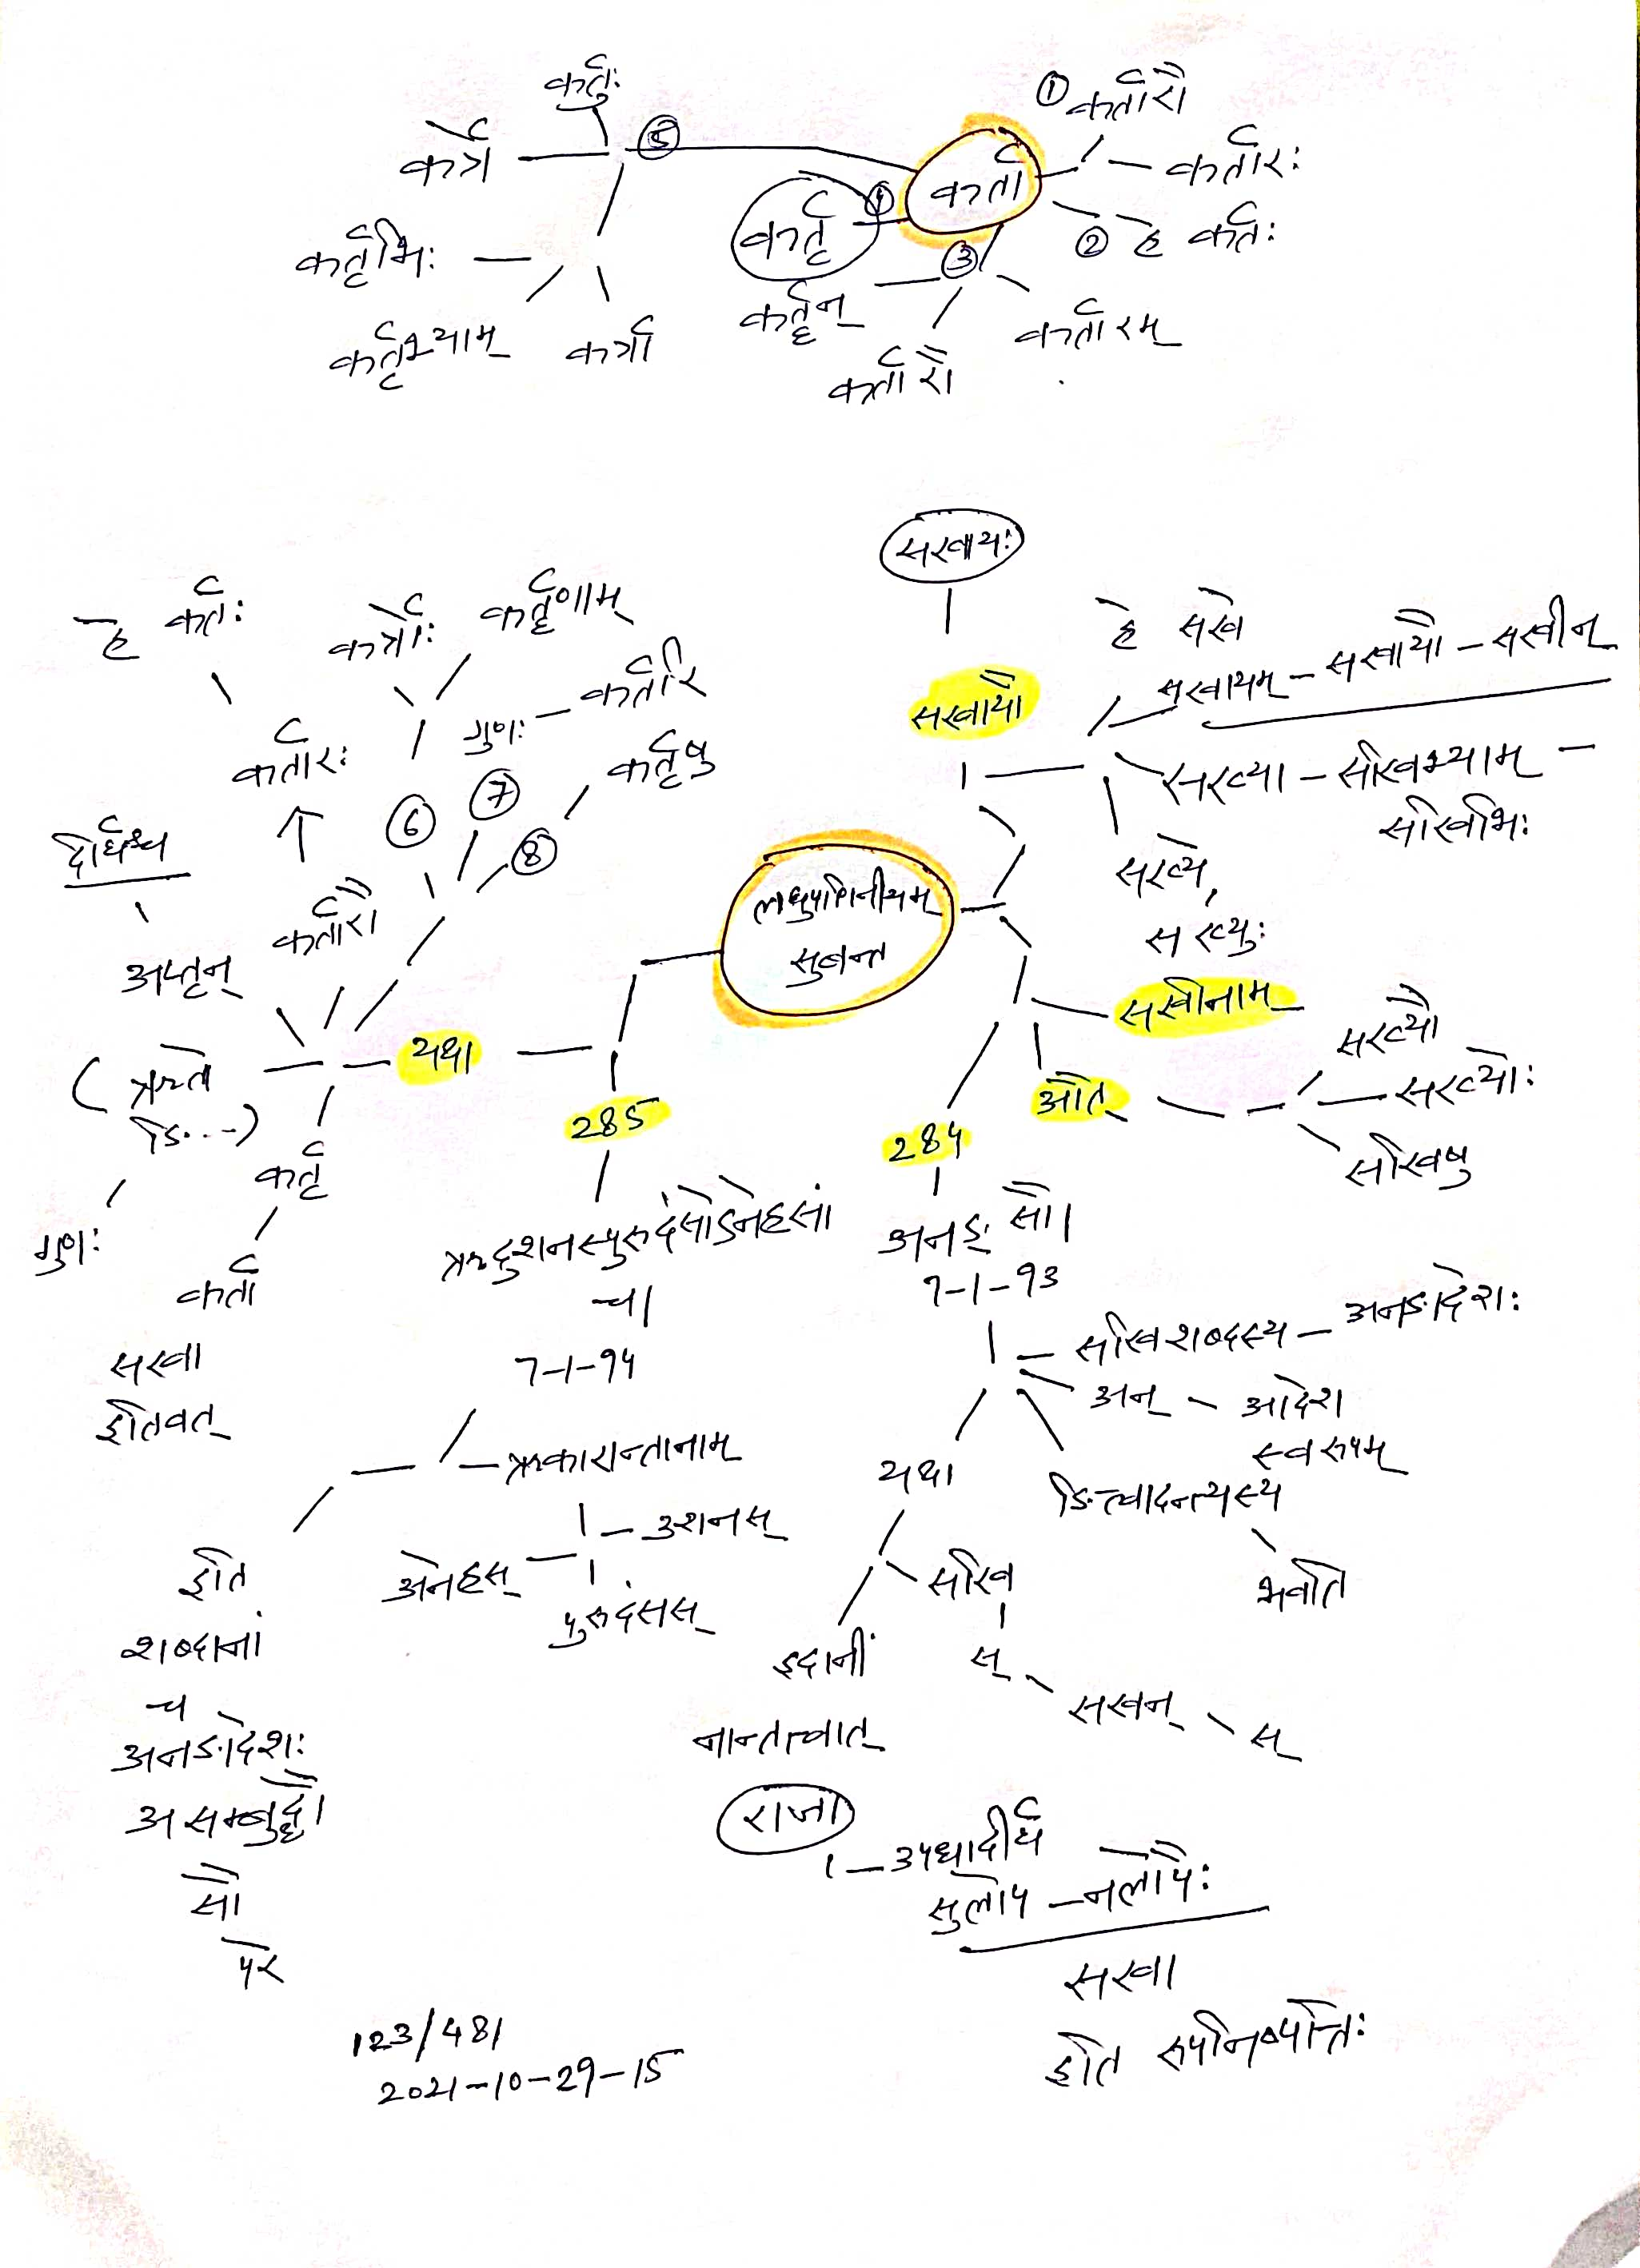 कर्तुः
कर्त्रे
⑤
कर्तृभिः
कर्तृभ्याम्
कर्त्रा
कर्ता
① कर्तारौ
कर्तारः
② हे कर्तः
③
कर्तारम्
कर्तारौ
कर्तॄन्
④
कर्तृ
सखायः
सखायौ
हे सखे
सखायम् – सखायौ – सखीन्
सख्या – सखिभ्याम् –
सखिभिः
सख्ये,
सख्युः
सखीनाम्
औत्
सख्यौ
सख्योः
सखिषु
हे कर्तः
कर्त्रोः
कर्तॄणाम्
गुणः – कर्तरि
कर्तृषु
कर्तारः
⑥
⑦
⑧
दीर्घश्च
कर्तारौ
अप्तृन्
लघुपाणिनीयम्
सुबन्त
यथा
(ऋतो
ङि...)
गुणः
कर्तृ
कर्ता
सखा
इतिवत्
285
ऋदुशनस्पुरुदंसोऽनेहसां
च।
7-1-94
ऋकारान्तानाम्
उशनस्
अनेहस्
पुरुदंसस्
इति
शब्दानां
च
अनङादेशः
असम्बुद्धौ
सौ
परे
284
अनङ् सौ।
7-1-93
सखिशब्दस्य – अनङादेशः
अन् – आदेश
स्वरूपम्
ङित्त्वादन्त्यस्य
भवति
यथा
सखि
स्
सखन्
स्
इदानीं
नान्तत्वात्
राजा
उपधादीर्घ
सुलोप – नलोपैः
सखा
इति रूपनिष्पत्तिः
123/481
2021-10-29-15